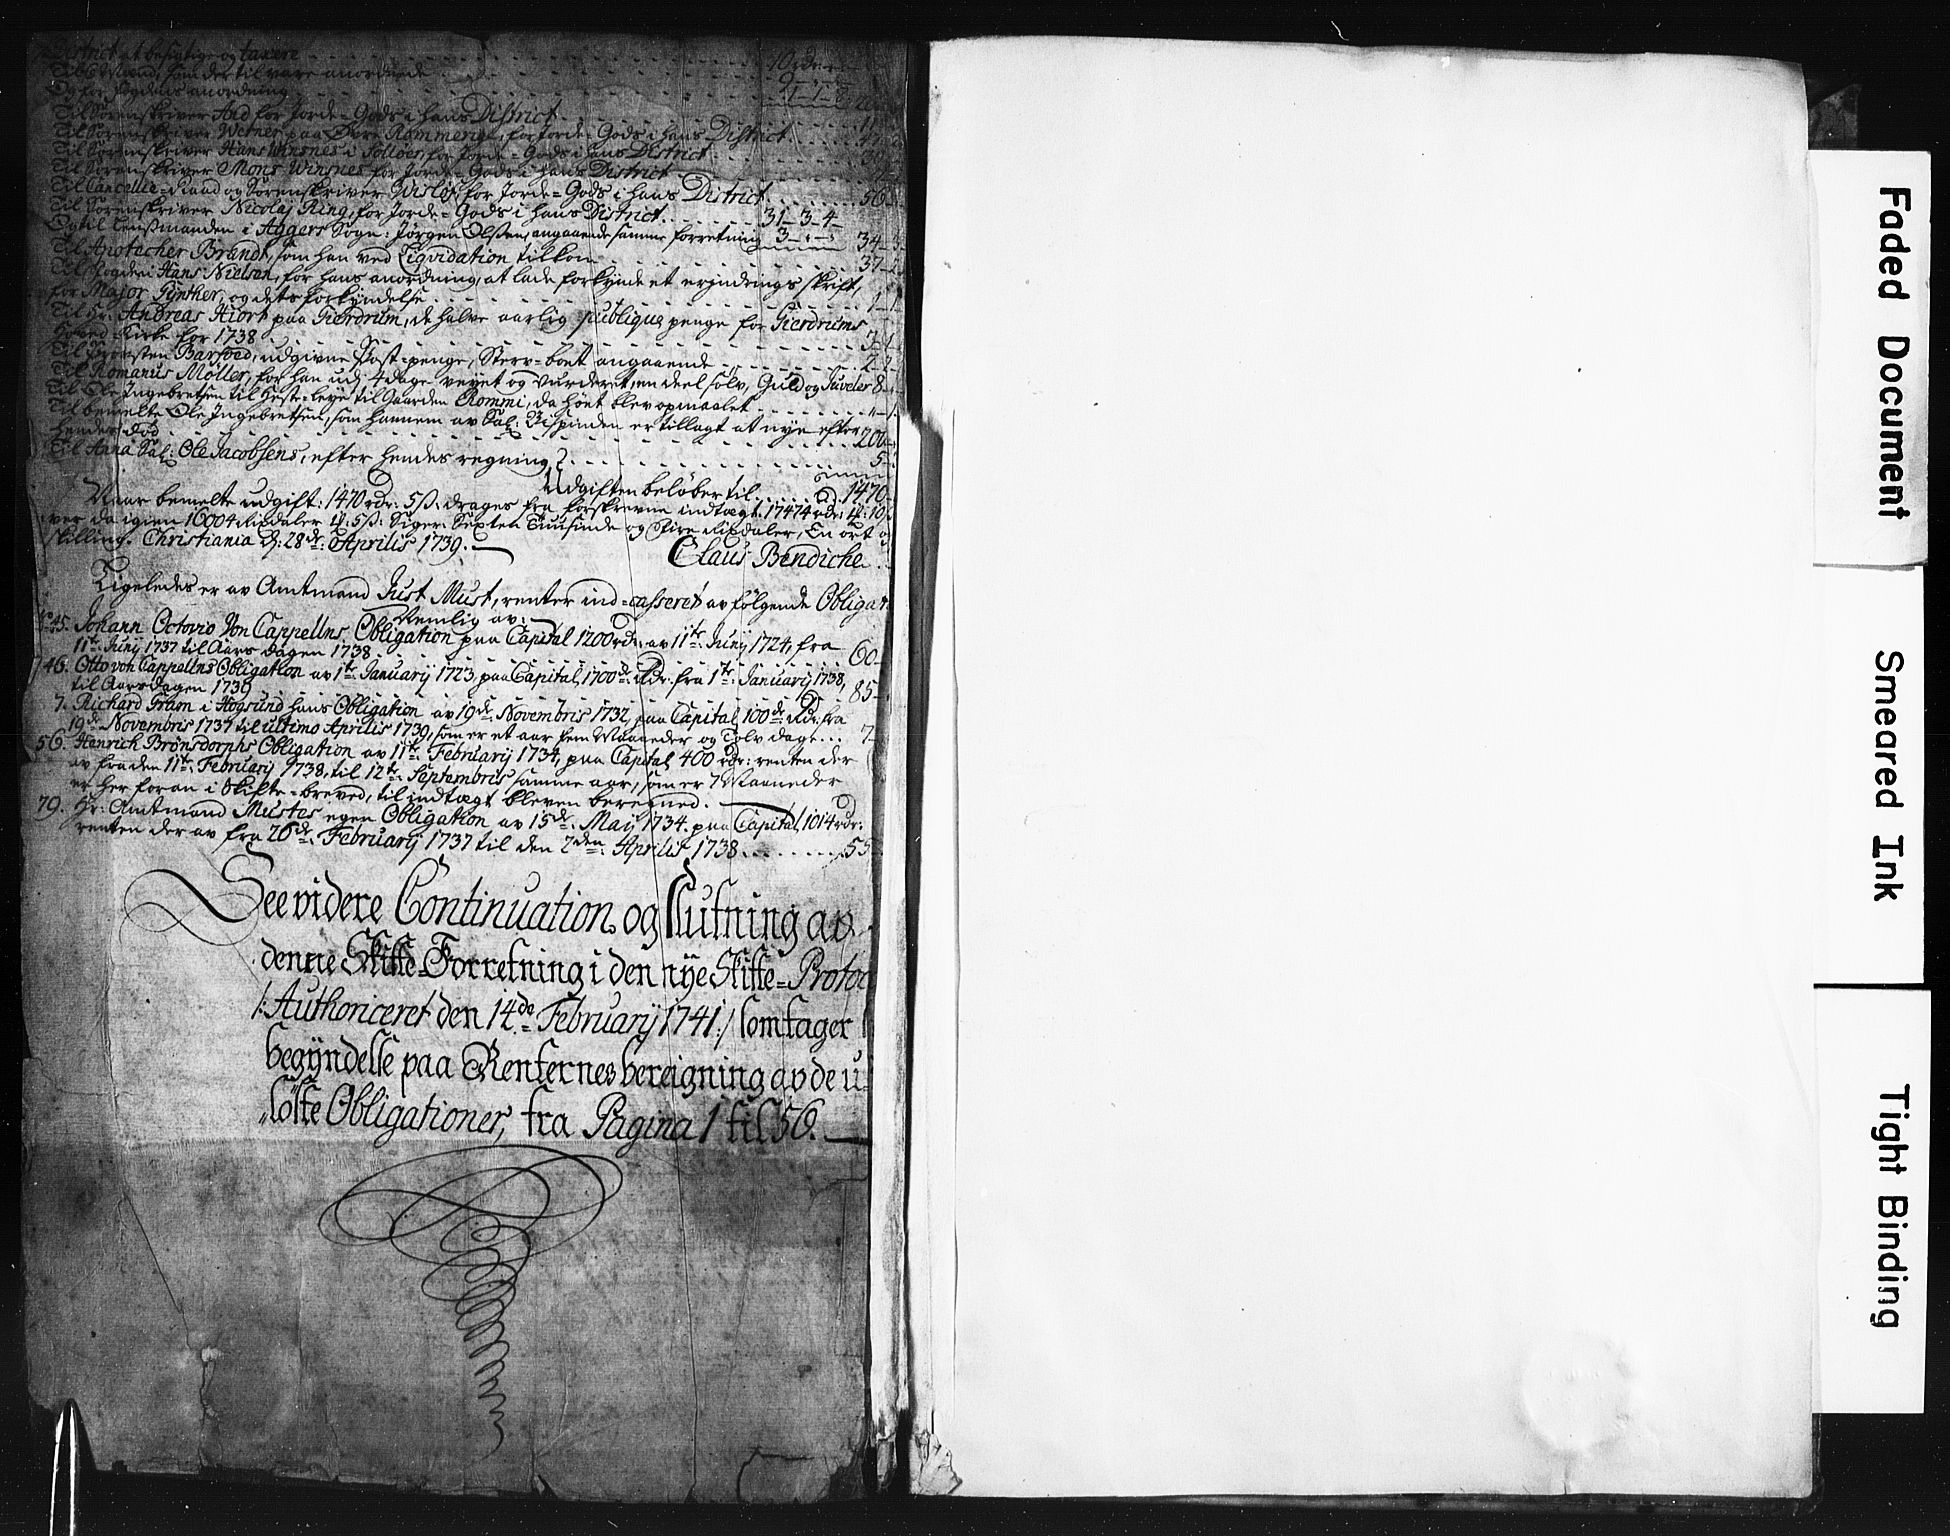 District at besigtige og taxere . . . 10 rdr:
Og for fogdens anordning . . . 1-1-8
Til Sorenskriver Aid for Jorde-Gods i hans District . . .
Til Sorenskriver Werner paa Øvre Rommerige, for Jorde-Gods i hans District . . .
Til Sorenskriver Hans Winsnes i Solløer, for Jorde-Gods i hans District . . .
Til Sorenskriver Mons Winsnes for Jorde-Gods i hans District . . .
Til Cancellie-Raad og Sorenskriver Wisløf for Jorde-Gods i hans District . . . 56
Til Sorenskriver Nicolaj Ring, for Jorde-Gods i hans District . . . 31-3-4
Og til Lensmanden i Aggers Sogn: Jørgen Olsen, angaaende samme forretning 3 . . . 34-3
Til Apotecher Brandt, som han ved Liqvidation tilkom . . . 37-2
Til fogden Hans Nielsen, for hans anordning, at lade forkynde et erindrings skrift,
for Major Günther, og dets forkyndelse . . . 1-1
Til Hr: Andreas Hiort paa Gierdrum, de halve aarlig publique penge for Gierdrums
Hoved-Kirke for 1738 . . . 3-1
Til Provsten Barfoed, udgivne Post-penge, Sterv-boet angaaende . . . 2-2
Til Romanus Møller, for han udj 4 dage veyet og vurderet, en deel sølv, Guld og Juveler 8
Til Ole Ingebretsen til Heste-leye til Gaarden Rommi, da höet blev opmaalet . . .
Til bemelte Ole Ingebretsen, som hannem av Sal: Bispinden er tillagt at nye efter
hendes død . . . 200
Til Anna Sal: Ole Jacobsens, efter hendes regning . . . 5
Udgiften beløber til . . . rd. 1470
Naar bemelte udgift: 1470 rdr: 5 ß: drages fra forskrevne indtægt: 17474 rdr: 1f: 10
ver da igien 16004 Rixdaler 1f: 5 ß: Siger: Sexten Tuusinde og Fire Rixdaler, En ort
skilling. Christiania d: 28de: Aprilis 1739.
Claus Bendiche
Ligeledes er av Amtmand Just Must, renter ind-casseret av følgende Obligat
Nemlig av:
No 45. Johann Octovio Von Cappellns Obligation paa Capital 1200 rdr: av 11te: Junij 1724, fra
11te: Junij 1737 til Aars dagen 1738 . . . 60
46. Otto von Cappellns Obligation av 1te: Januarij 1723, paa Capital, 1700de: Rdr: fra 1te: Januarij 1738,
til Aarsdagen 1739 . . . 85
7. Richard Gram i Hogsund hans Obligation av 19de: Novembris 1732, paa Capital 100de Rdr: fra
19de: Novembris 1737 til ultimo Aprilis 1739, som er et aar fem Maaneder og Tolv dage . . . 7
56. Henrich Brønsdorphs Obligation av 11te: Februarij 1734, paa Capital 400 rdr: renten der
av fra den 11te: Februarij 1738, til 12te: Septembris samme aar, som er 7 Maaneder
er her foran i Skifte-breved, til indtægt bleven beregned.
79. Hr: Amtmand Mustes egen Obligation av 15de: Maij 1734. paa Capital, 1014 rdr:
renten der av fra 26de: Februarij 1737 til den 2den: Aprilis 1738 . . . 55
See videre Continuation og slutning av
denne Skifte-Forretning i den nye Skifte-Protoc
/: Authoriceret den 14de Februarij 1741 :/ som tager
begyndelse paa Renternes bereigning av de u
løste Obligationer, fra Pagina 1 til 56.
Faded Document
Smeared Ink
Tight Binding